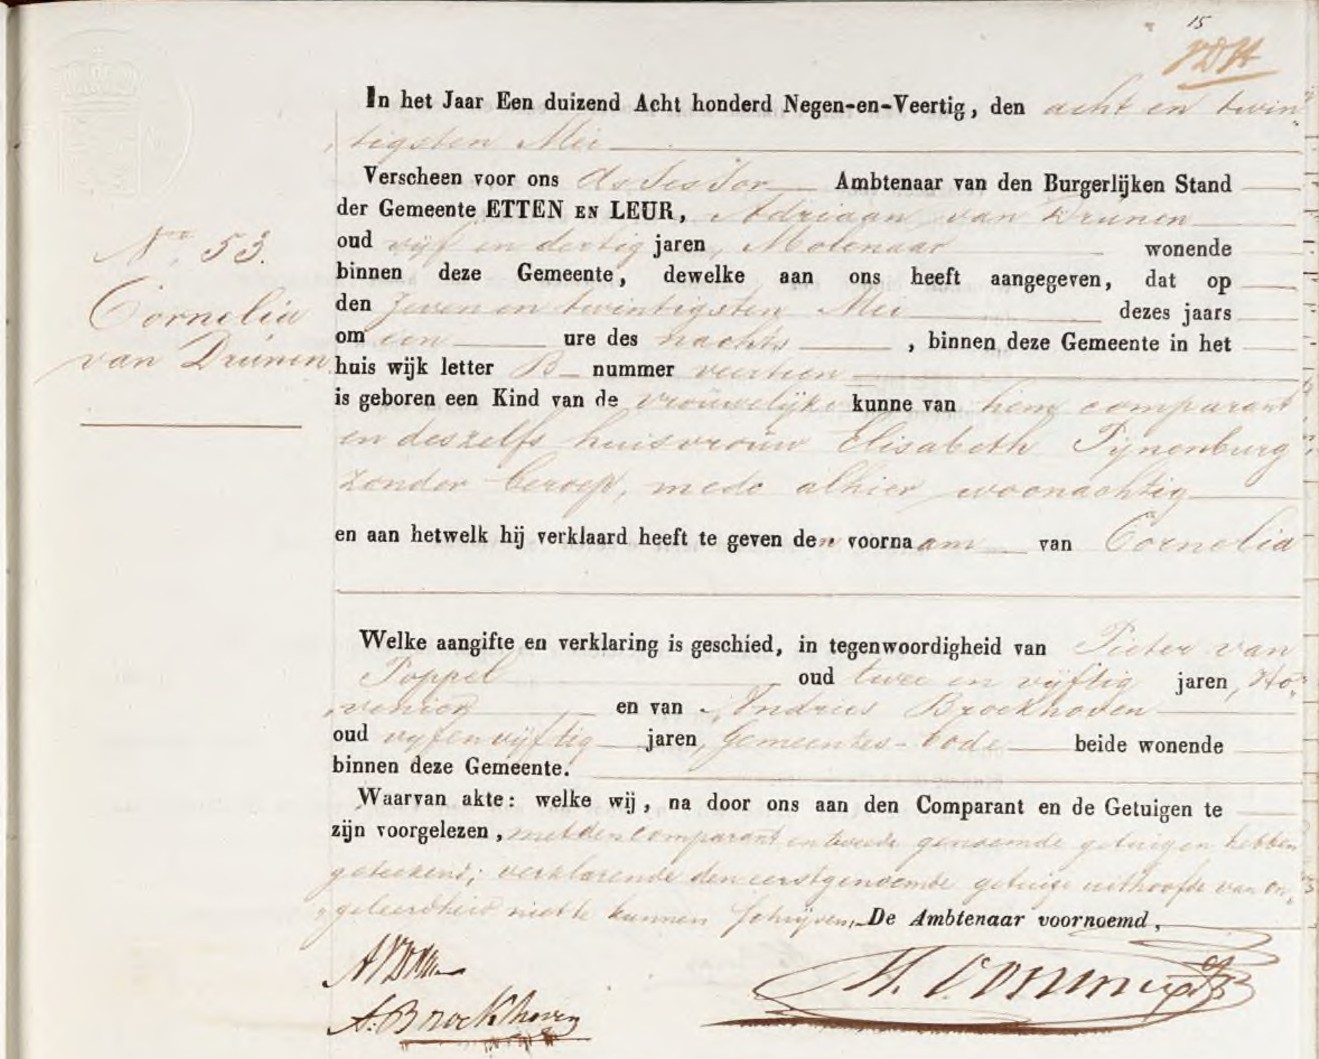 15
VDH
In het Jaar Een duizend Acht honderd Negen-en-Veertig, den acht en twin„
„tigsten Mei
Verscheen voor ons Assessor Ambtenaar van den Burgerlijken Stand
der Gemeente ETTEN EN LEUR, Adriaan van Drunen
oud vijf en dertig jaren, Molenaar wonende
binnen deze Gemeente, dewelke aan ons heeft aangegeven, dat op
den zeven en twintigsten Mei dezes jaars
om een ure des nachts, binnen deze Gemeente in het
huis wijk letter B nummer veertien
is geboren een Kind van de vrouwelijke kunne van hem comparant
en deszelfs huisvrouw Elisabeth Pijnenburg
zonder beroep, mede alhier woonachtig
en aan hetwelk hij verklaard heeft te geven den voornaam van Cornelia
Welke aangifte en verklaring is geschied, in tegenwoordigheid van Pieter van
Poppel oud twee en vijftig jaren, Ho„
„venier en van Andries Broekhoven
oud vijfenvijftig jaren, Gemeentes-bode beide wonende
binnen deze Gemeente.
Waarvan akte: welke wij, na door ons aan den Comparant en de Getuigen te
zijn voorgelezen, met den comparant en tweede genoemde getuigen hebben
geteekend; verklarende den eerstgenoemde getuige uithoofde van on„
„geleerdheid niet te kunnen schrijven. De Ambtenaar voornoemd,
A. Broekhoven
No. 53.
Cornelia
van Drunen